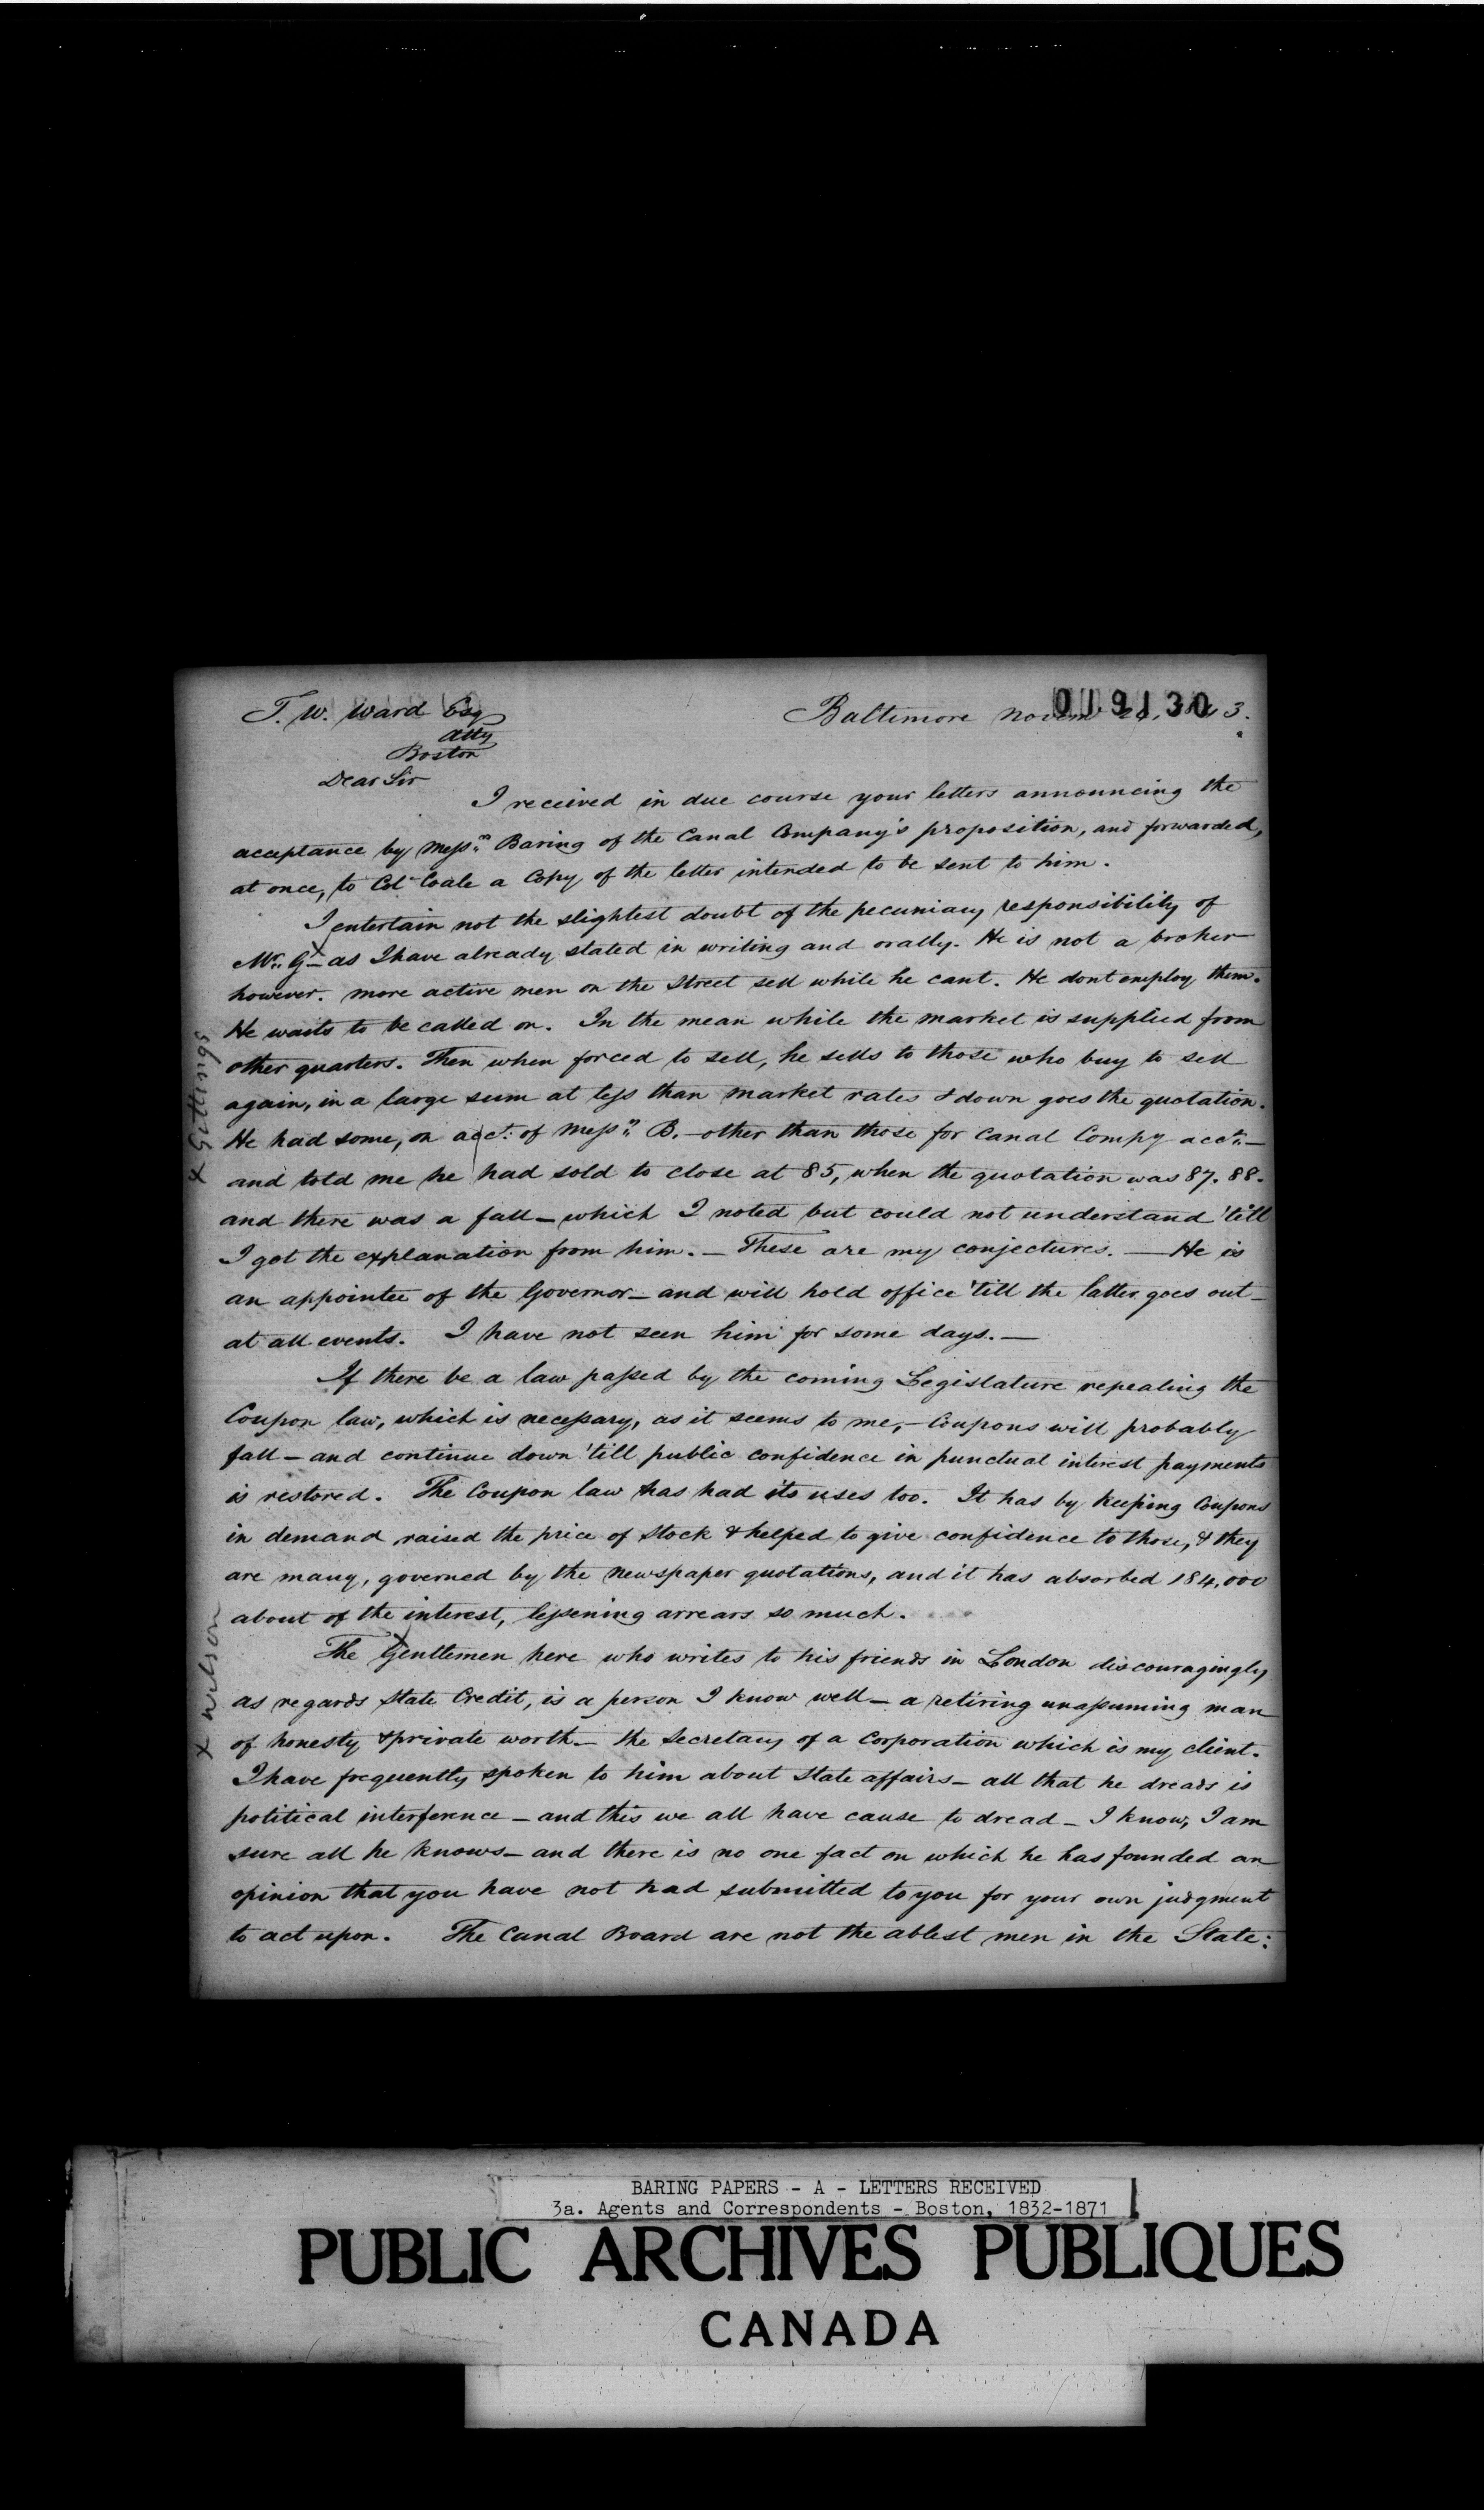 019130
T. W. Ward Esq
Atty
Boston
Baltimore Novem 3.
Dear Sir
I received in due course your letters announcing the
acceptance by Messrs Baring of the Canal Company's proposition, and forwarded,
at once, to Col Coale a Copy of the letter intended to be sent to him.
I entertain not the slightest doubt of the pecuniary responsibility of
Mr. G x — as I have already stated in writing and orally. He is not a broker
however. more active men on the street sell while he cant. He dont employ them.
He waits to be called on. In the mean while the market is supplied from
other quarters. Then when forced to sell, he sells to those who buy to sell
again, in a large sum at less than market rates & down goes the quotation.
He had some, on acct: of Messrs B. — other than those for Canal Compy acct. —
and told me he had sold to close at 85, when the quotation was 87. 88.
and there was a fall — which I noted but could not understand 'till
I got the explanation from him. — These are my conjectures. — He is
an appointee of the Governor — and will hold office 'till the latter goes out —
at all events. I have not seen him for some days. —
If there be a law passed by the coming Legislature repealing the
Coupon law, which is necessary, as it seems to me, — Coupons will probably
fall — and continue down 'till public confidence in punctual interest payments
is restored. The Coupon law has had its uses too. It has by keeping Coupons
in demand raised the price of stock & helped to give confidence to those, & they
are many, governed by the newspaper quotations, and it has absorbed 184,000
about of the interest, lessening arrears so much.
The x Gentlemen here who writes to his friends in London discouragingly
as regards State Credit, is a person I know well — a retiring unassuming man
of honesty & private worth — the Secretary of a Corporation which is my client.
I have frequently spoken to him about State affairs — all that he dreads is
political interference — and this we all have cause to dread — I know, I am
sure all he knows — and there is no one fact on which he has founded an
opinion that you have not had submitted to you for your own judgment
to act upon. The Canal Board are not the ablest men in the State:
x Gittings
x Wilson
BARING PAPERS - A - LETTERS RECEIVED
3a. Agents and Correspondents - Boston, 1832-1871
PUBLIC ARCHIVES PUBLIQUES
CANADA